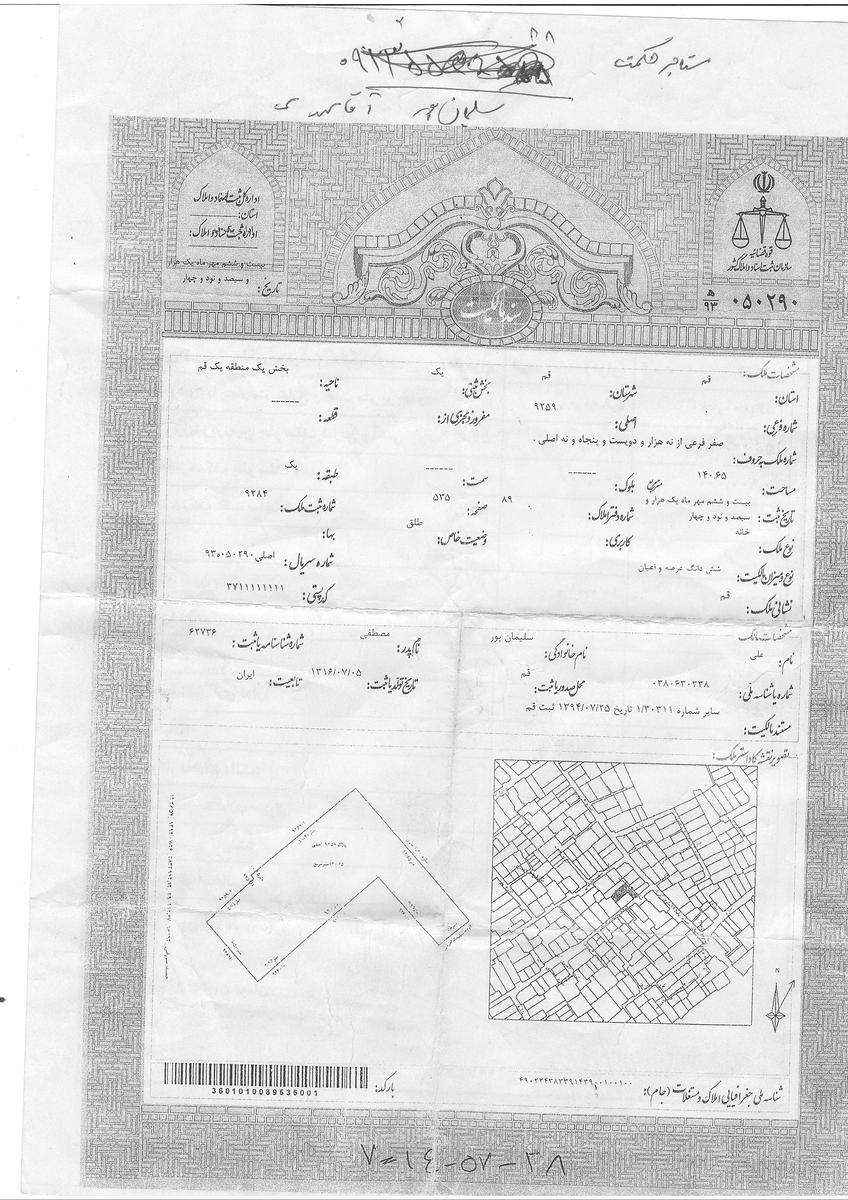 مستاجر حکمت
سلیمان پور آقا مهدی
اداره کل ثبت اسناد و املاک
استان:
اداره ثبت اسناد و املاک:
بیست و ششم مهر ماه یک هزار
و سیصد و نود و چهار
تاریخ:
قوه قضائیه
سازمان ثبت اسناد و املاک کشور
۰۵۰۲۹۰ ه‍ ۹۳
سند مالکیت
مشخصات ملک:
استان: قم شهرستان: قم بخش ثبتی: یک ناحیه: بخش یک منطقه یک قم
شماره فرعی: ۰ اصلی: ۹۲۵۹ مفروز و مجزی از: قطعه: ------
شماره ملک بحروف: صفر فرعی از نه هزار و دویست و پنجاه و نه اصلی .
مساحت: ۱۴۰.۶۵ مترمربع بلوک: ------ سمت: ------ طبقه: یک
تاریخ ثبت: بیست و ششم مهر ماه یک هزار و
سیصد و نود و چهار
شماره دفتر املاک: ۸۹ صفحه: ۵۳۵ شماره ثبت ملک: ۹۲۸۴
نوع ملک: خانه کاربری: وضعیت خاص: طلق بها:
نوع و میزان مالکیت: شش دانگ عرصه و اعیان شماره سریال: اصلی۹۳ه۰۵۰۲۹۰
نشانی ملک: قم کد پستی: ۳۷۱۱۱۱۱۱۱۱
مشخصات مالک
نام: علی نام خانوادگی: سلیمان پور نام پدر: مصطفی شماره شناسنامه یا ثبت: ۶۲۷۳۶
شماره یا شناسه ملی: ۰۳۸۰۶۳۰۳۳۸ محل صدور یا ثبت: قم تاریخ تولد یا ثبت: ۱۳۱۶/۰۷/۰۵ تابعیت: ایران
مستند مالکیت: سایر شماره ۱/۳۰۳۱۱ تاریخ ۱۳۹۴/۰۷/۲۵ ثبت قم
تصویر نقشه کاداستر ملک:
N
بارکد:
3601010089535001
شناسه ملی جغرافیایی املاک و مستغلات (جام): ۴۹۰۲۲۴۳۸۳۳۹۱۴۳۹۰۰۱۰۰۱۰۰
۷=۱٤-۵۷-۳۸